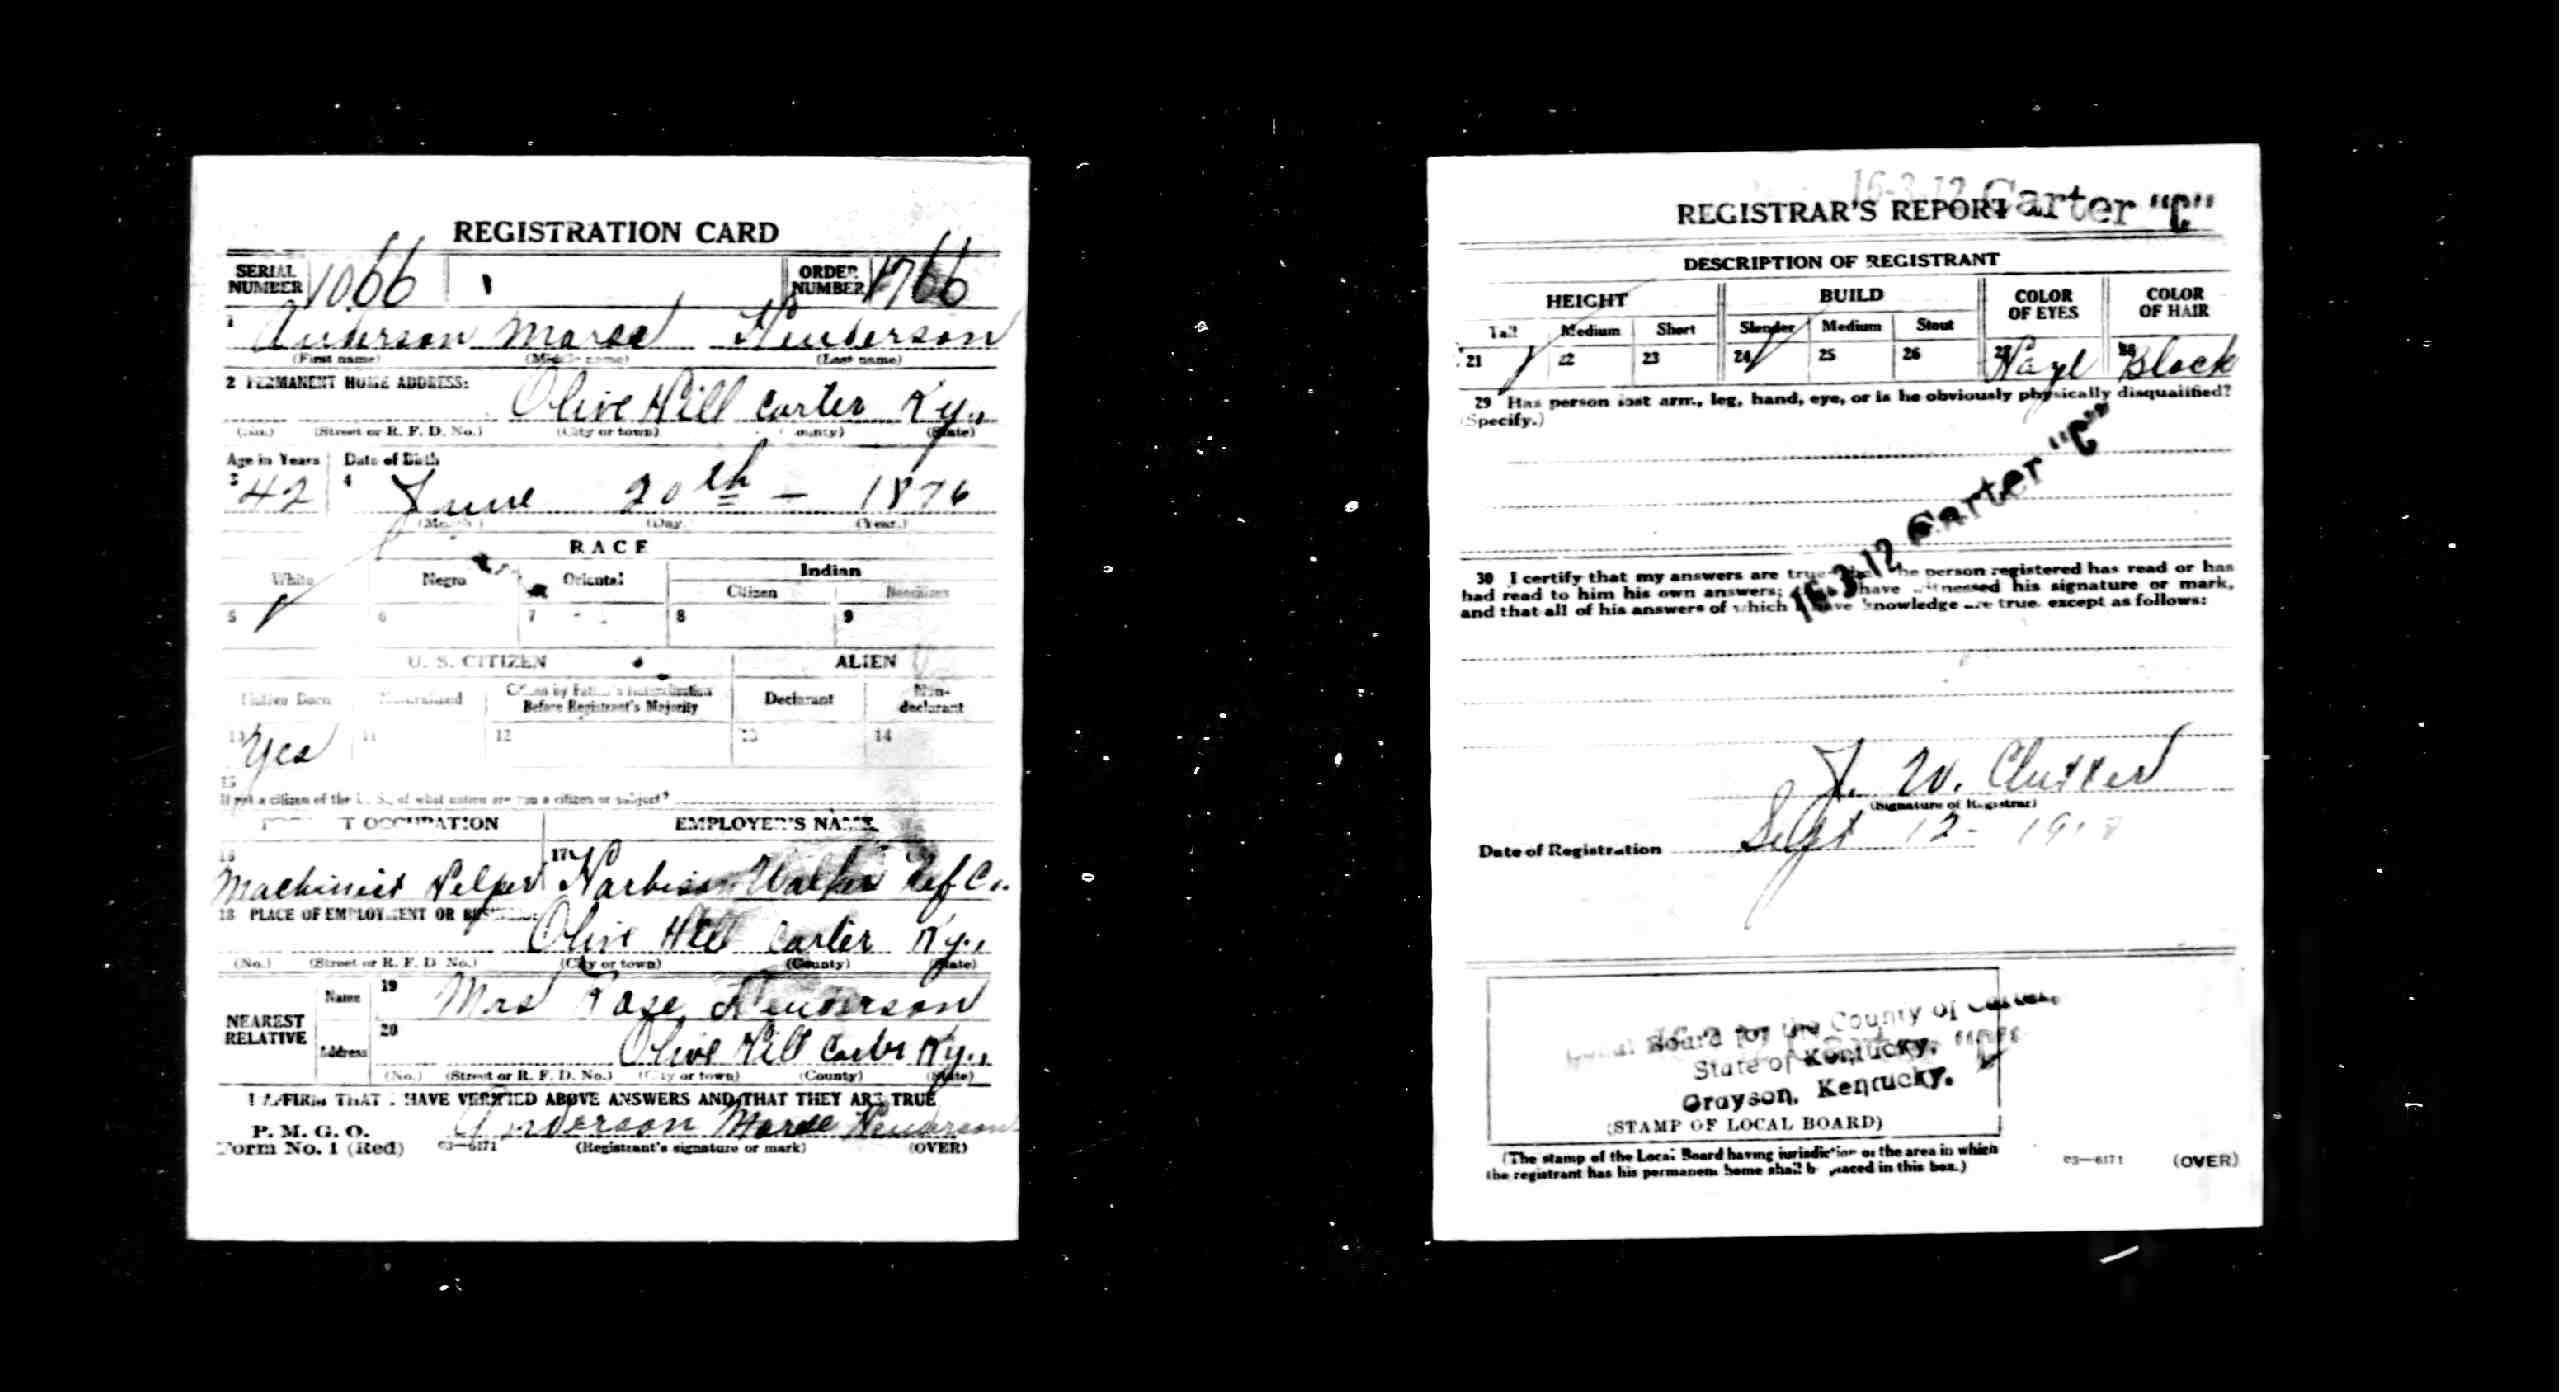 REGISTRATION CARD
SERIAL NUMBER 1066 ORDER NUMBER 1766
1 Anderson Henderson
(First name) (Middle name) (Last name)
2 PERMANENT HOME ADDRESS:
Olive Hill Carter Ky.,
(No.) (Street or R. F. D. No.) (City or town) (County) (State)
Age in Years Date of Birth
3 42 4 June 20th - 1876
(Month) (Day.) (Year.)
RACE
White Negro Oriental Indian
Citizen Noncitizen
5 6 7 8 9
U. S. CITIZEN ALIEN
Native Born Naturalized Citizen by Father's Naturalization Before Registrant's Majority Declarant Non-declarant
10 Yes 11 12 13 14
15
If not a citizen of the U. S., of what nation are you a citizen or subject?
PRESENT OCCUPATION EMPLOYER'S NAME
16 Machinist Helper 17 Harbison Walker Ref Co.
18 PLACE OF EMPLOYMENT OR BUSINESS:
Olive Hill Carter Ky.,
(No.) (Street or R. F. D. No.) (City or town) (County) (State)
NEAREST RELATIVE
Name 19 Mrs Henderson
Address 20 Olive Hill Carter Ky.,
(No.) (Street or R. F. D. No.) (City or town) (County) (State)
I AFFIRM THAT I HAVE VERIFIED ABOVE ANSWERS AND THAT THEY ARE TRUE
P. M. G. O.
Form No. 1 (Red) 03—6171
Anderson Henderson
(Registrant's signature or mark) (OVER)
16-3-12 Carter "C"
REGISTRAR'S REPORT
DESCRIPTION OF REGISTRANT
HEIGHT BUILD COLOR OF EYES COLOR OF HAIR
Tall Medium Short Slender Medium Stout
21 22 23 24 25 26 27 Hazl 28 Black
29 Has person lost arm, leg, hand, eye, or is he obviously physically disqualified?
(Specify.)
16-3-12 Carter "C"
30 I certify that my answers are true; that the person registered has read or has
had read to him his own answers; that I have witnessed his signature or mark,
and that all of his answers of which I have knowledge are true, except as follows:
J. W.
(Signature of Registrar)
Date of Registration Sept 12 - 1918
Local Board for the County of Carter,
State of Kentucky,
Grayson, Kentucky.
(STAMP OF LOCAL BOARD)
(The stamp of the Local Board having jurisdiction of the area in which
the registrant has his permanent home shall be placed in this box.)
03—6171 (OVER)